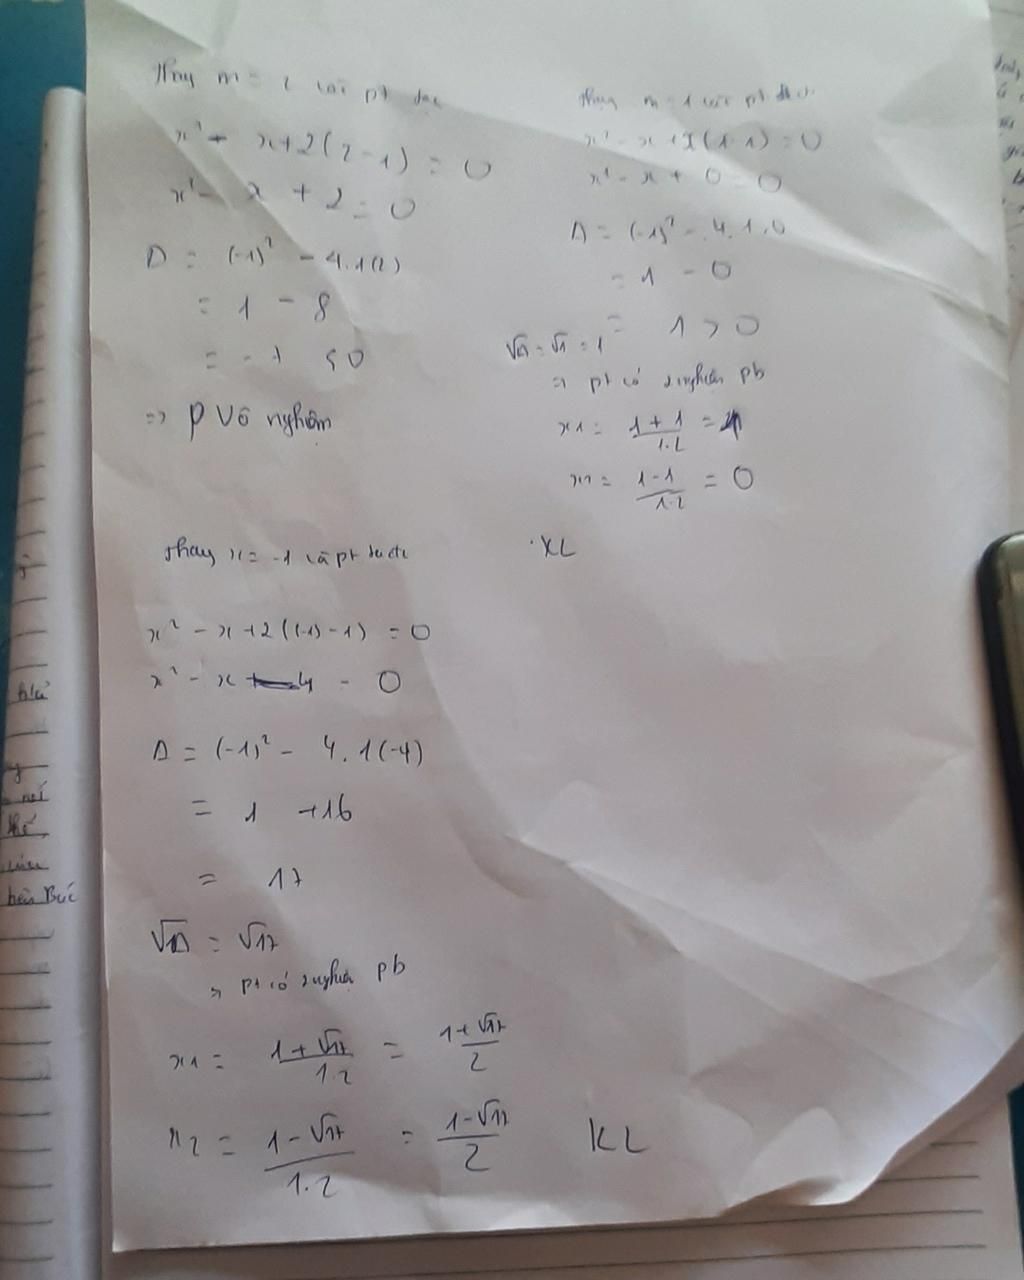 Thay m = 2 vào pt
x² - x + 2(2 - 1) = 0
x² - x + 2 = 0
Δ = (-1)² - 4.1(2)
= 1 - 8
= -7 < 0
=> P vô nghiệm
Thay m = 1 vào pt
x² - x + 2(1-1) = 0
x² - x + 0 = 0
Δ = (-1)² - 4.1.0
= 1 - 0
= 1 > 0
√Δ = √1 = 1
=> pt có 2 nghiệm pb
x1 = (1 + 1)/1.2 = 1
= (1 - 1)/1.2 = 0
KL
Thay x = -1 và pt
x² - x + 2((-1) - 1) = 0
x² - x - 4 = 0
Δ = (-1)² - 4.1(-4)
= 1 + 16
= 17
√Δ = √17
=> pt có 2 nghiệm pb
x1 = (1 + √17)/1.2 = (1 + √17)/2
x2 = (1 - √17)/1.2 = (1 - √17)/2
KL
hên Bức